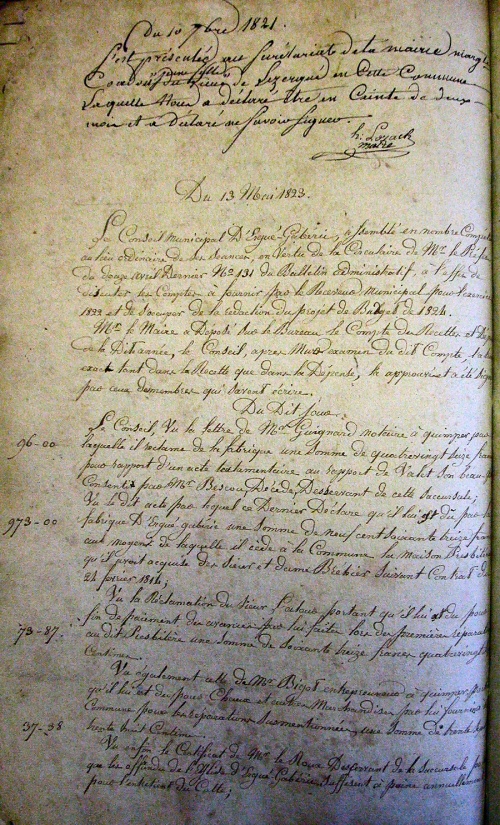 Du 10 7bre 1821.
S'est présentée au Secrétariat de la mairie marg.te
Coadou du lieu de Lezergué en Cette Commune
pour fille
Laquelle Nous a déclaré être en Ceinte de deux
mois et a Déclaré ne Savoir Signer
h: Lozach
maire
Du 13 Mai 1823.
Le Conseil Municipal D'Ergué-Gabéric, assemblé en nombre Compét
au lieu ordinaire de ses séances, en Vertu de la Circulaire de Mr le Préfet
du douze avril Dernier No 131 du Bulletin administratif, à l'effet de
discuter les Comptes à fournir par le Receveur Municipal pour l'exercice
1822 et de s'occuper de la rédaction du projet de Budget de 1824.
Mr le Maire a Déposé sur le Bureau le Compte des Recettes et Dép
de la Dite année, le Conseil, après Mur examen du dit Compte, l'a
exact tant dans la Recette que dans la Dépense, l'a approuvé et a été
par ceux des membres qui savent écrire.
Du Dit Jour.
Le Conseil, Vu la lettre de Mr Guignard notaire à quimper par
96-00
laquelle il réclame de la fabrique une somme de quatrevingt seize francs
pour rapport d'un acte testamentaire au rapport de Valet Son beau-p
Consenti par Mr Bescou, Décédé, Desservant de cette Succursale;
Vu le dit acte par lequel ce Dernier Déclare qu'il lui est du par la
973-00
fabrique D'Ergué-gabéric une Somme de neuf cent soixante treize fran
aux moyens de laquelle il cède à la Commune la maison Presbitér
qu'il avait acquise des Sieur et dame Brebier Suivant Contrat du
24 février 1814;
Vu la Réclamation du Sieur portant qu'il lui est du pour
fin de paiment du avances par lui faites lors des premières réparati
73-87.
au dit Presbitère une somme de Soixante treize francs quatrevingt
Centimes.
Vu également celle de Mr Bigot entrepreneur à quimper
qu'il lui est du pour Chaux et autres Marchandises par lui fournies
Commune pour les réparations Susmentionnées, une Somme de trente Sept
37-38
trente huit Centimes.
Vu enfin le Certificat de Mr le Roux Desservant de la Succursale
que les offrandes de l'église d'Ergué-Gabéric Suffisent à peine annuellement
pour l'entretien du Culte;